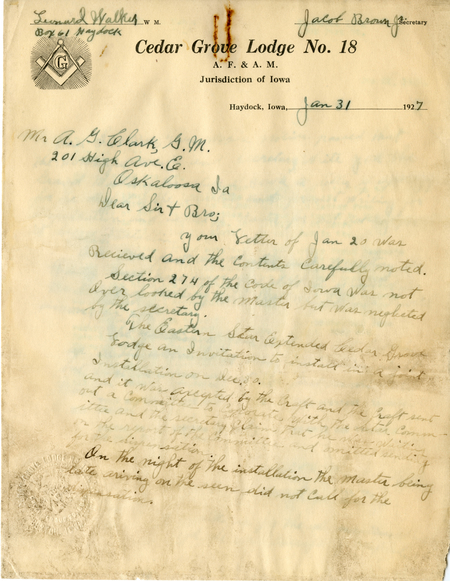 Leonard Walker W. M.
Box 61 Haydock
Jacob Brown Jr Secretary
G
Cedar Grove Lodge No. 18
A. F. & A. M.
Jurisdiction of Iowa
Haydock, Iowa, Jan 31 1927
Mr A. G. Clark, G. M.
201 High Ave. E.
Oskaloosa Ia
Dear Sir & Bro;
your Letter of Jan 20 was
Recieved and the Contents Carefully noted.
Section 274 of the Code of Iowa was not
Over looked by the Master but was neglected
by the secretary.
The Eastern Star Extended Cedar Grove
Lodge an Invitation to install in a joint
Installation on Dec. 30.
and it was accepted by the Craft and the Craft sent
out a Committee to with the Comm-
ittee and the Secretary that he was
on of report of the Committee and omitted sending
for a dispensation.
On the night of the installation the Master being
late ariving on the seen did not Call for the
dispensation.